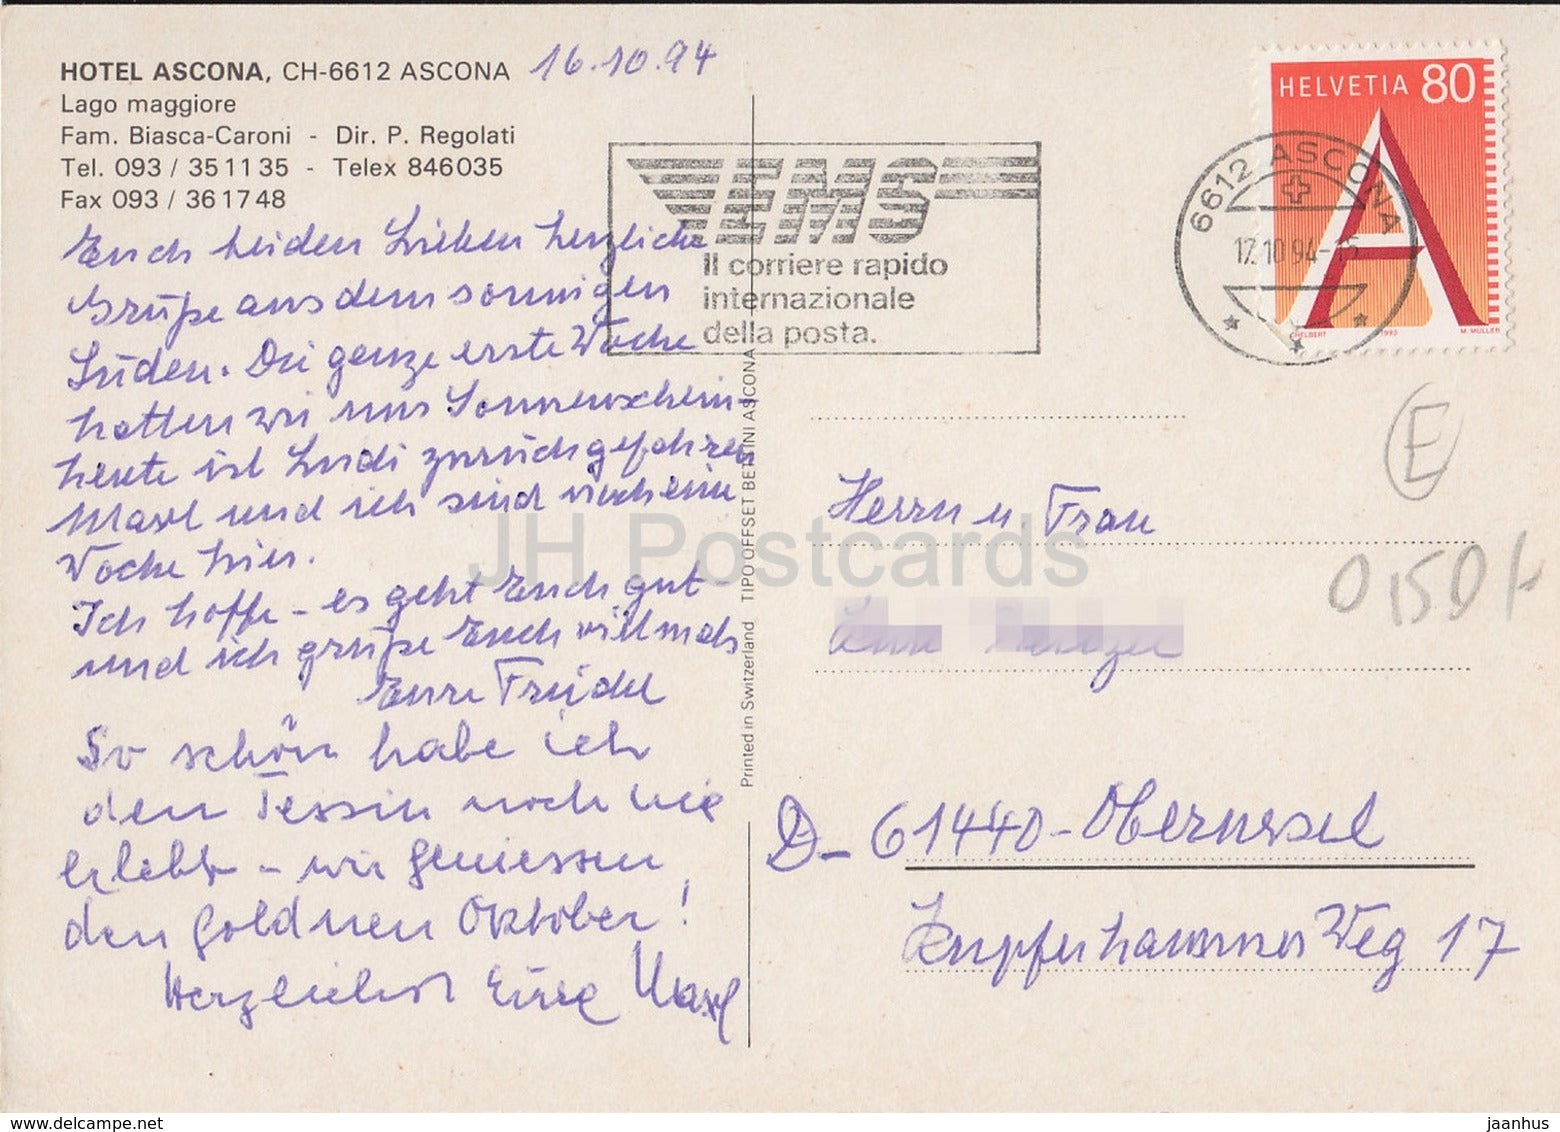 HOTEL ASCONA, CH-6612 ASCONA 16.10.94
Lago maggiore
Fam. Biasca-Caroni - Dir. P. Regolati
Tel. 093 / 35 11 35 - Telex 846035
Fax 093 / 36 17 48
Euch beiden Lieben herzliche
Grüße aus dem sonnigen
Süden. Die ganze erste Woche
hatten wir nur Sonnenschein -
heute ist Ludi zurückgefahren
Maxl und ich sind noch eine
Woche hier.
Ich hoffe - es geht Euch gut
und ich grüße Euch vielmals
Eure Friedel
So schön habe ich
den Tessin noch nie
erlebt - wir geniessen
den goldnen Oktober!
Herzlichst Eure Maxl
Printed in Switzerland TIPO OFFSET BETTINI ASCONA
EMS
Il corriere rapido
internazionale
della posta.
6612 ASCONA
17.10.94-15
HELVETIA 80
A
1993 M. MÜLLER
E
Herrn u. Frau
D-61440-Oberursel
Kupferhammer Weg 17
JH Postcards
delcampe.net
jaanhus